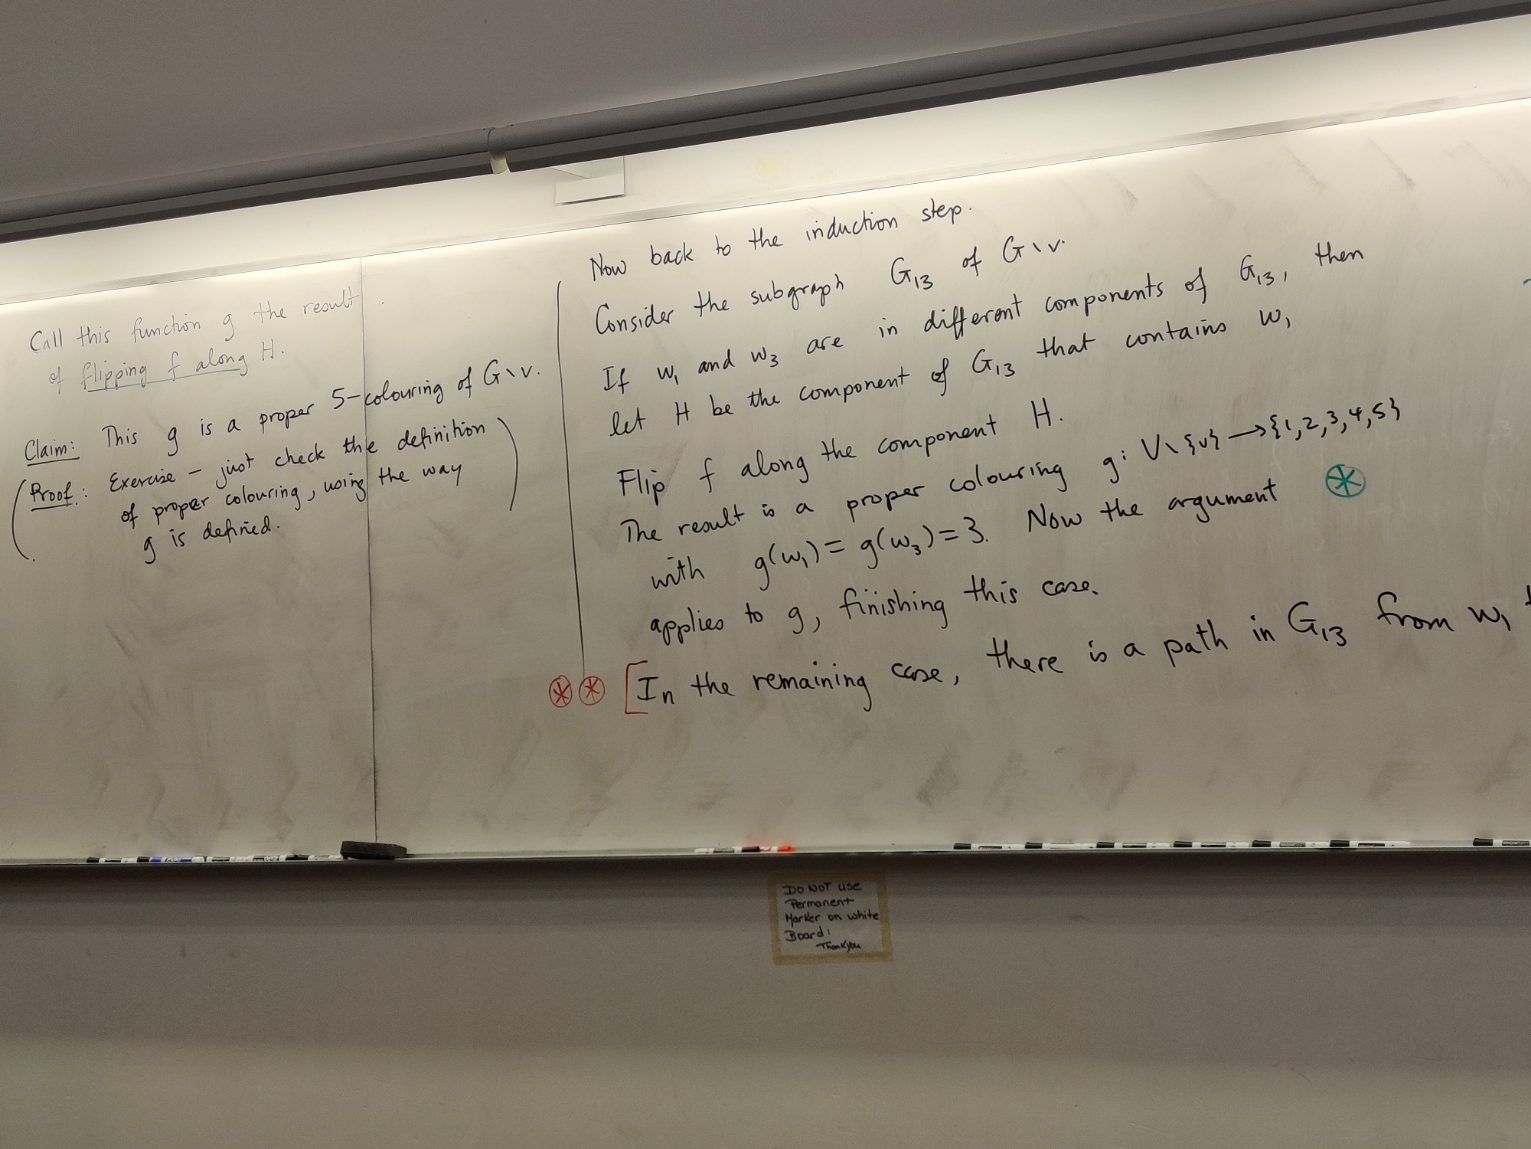 Call this function g the result
of flipping f along H.
Claim: This g is a proper 5-colouring of G∖v.
(Proof: Exercise – just check the definition
of proper colouring, using the way
g is defined.)
Now back to the induction step.
Consider the subgraph G₁₃ of G∖v.
If w₁ and w₃ are in different components of G₁₃, then
let H be the component of G₁₃ that contains w₁
Flip f along the component H.
The result is a proper colouring g: V∖{v} → {1,2,3,4,5}
with g(w₁) = g(w₃) = 3. Now the argument ⊛
applies to g, finishing this case.
⊛⊛ [In the remaining case, there is a path in G₁₃ from w₁
Do Not use
Permanent
Marker on white
Board!
Thank you